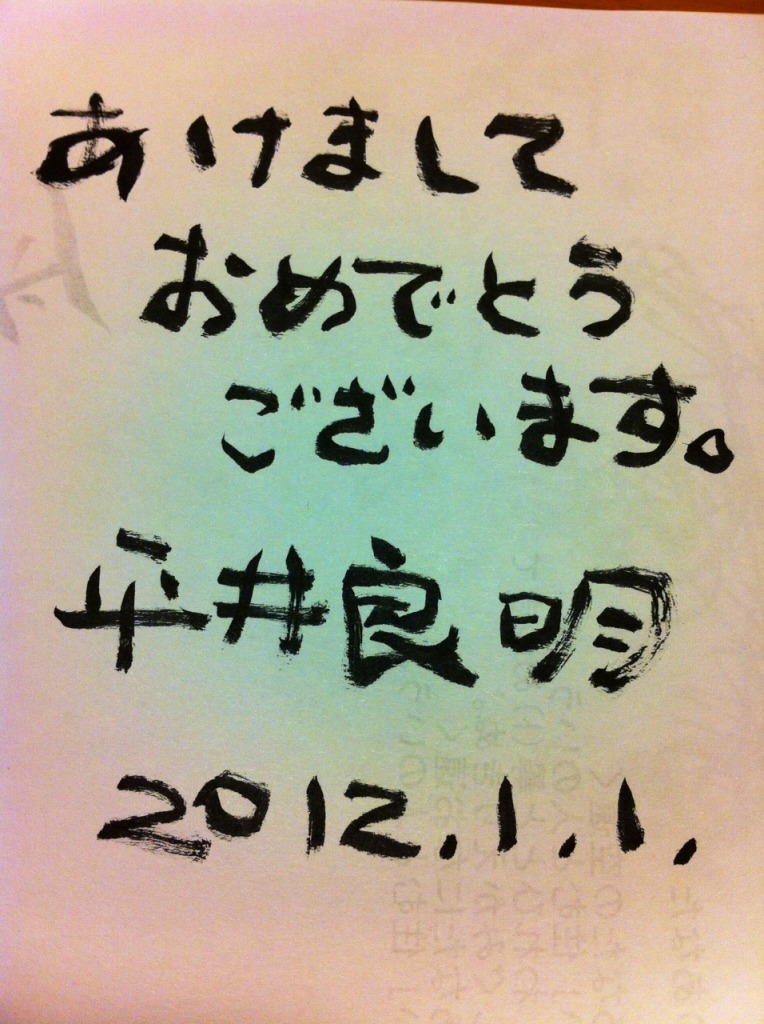 あけまして
おめでとう
ございます。
平井良明
2012.1.1.